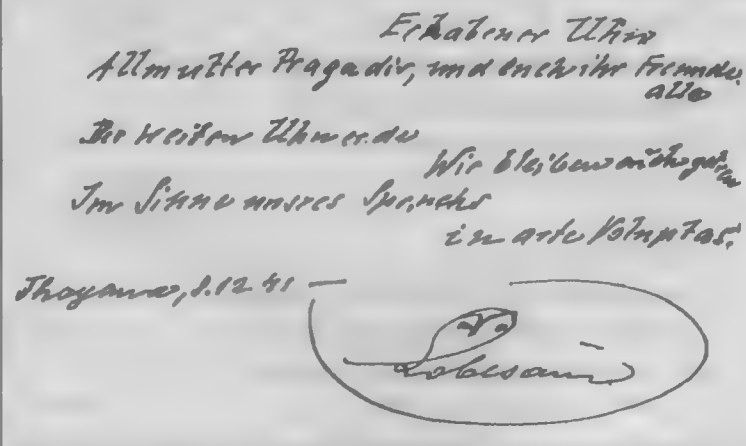 Erhabener Uhu
Allmutter Praga dir, und euch ihr Freunde
alle
Ihr weisen Uhue du
Wir bleiben auch getreu
Im Sinne unsres Spruchs
in arte Voluptas!
8.12 41 —
Lobesam